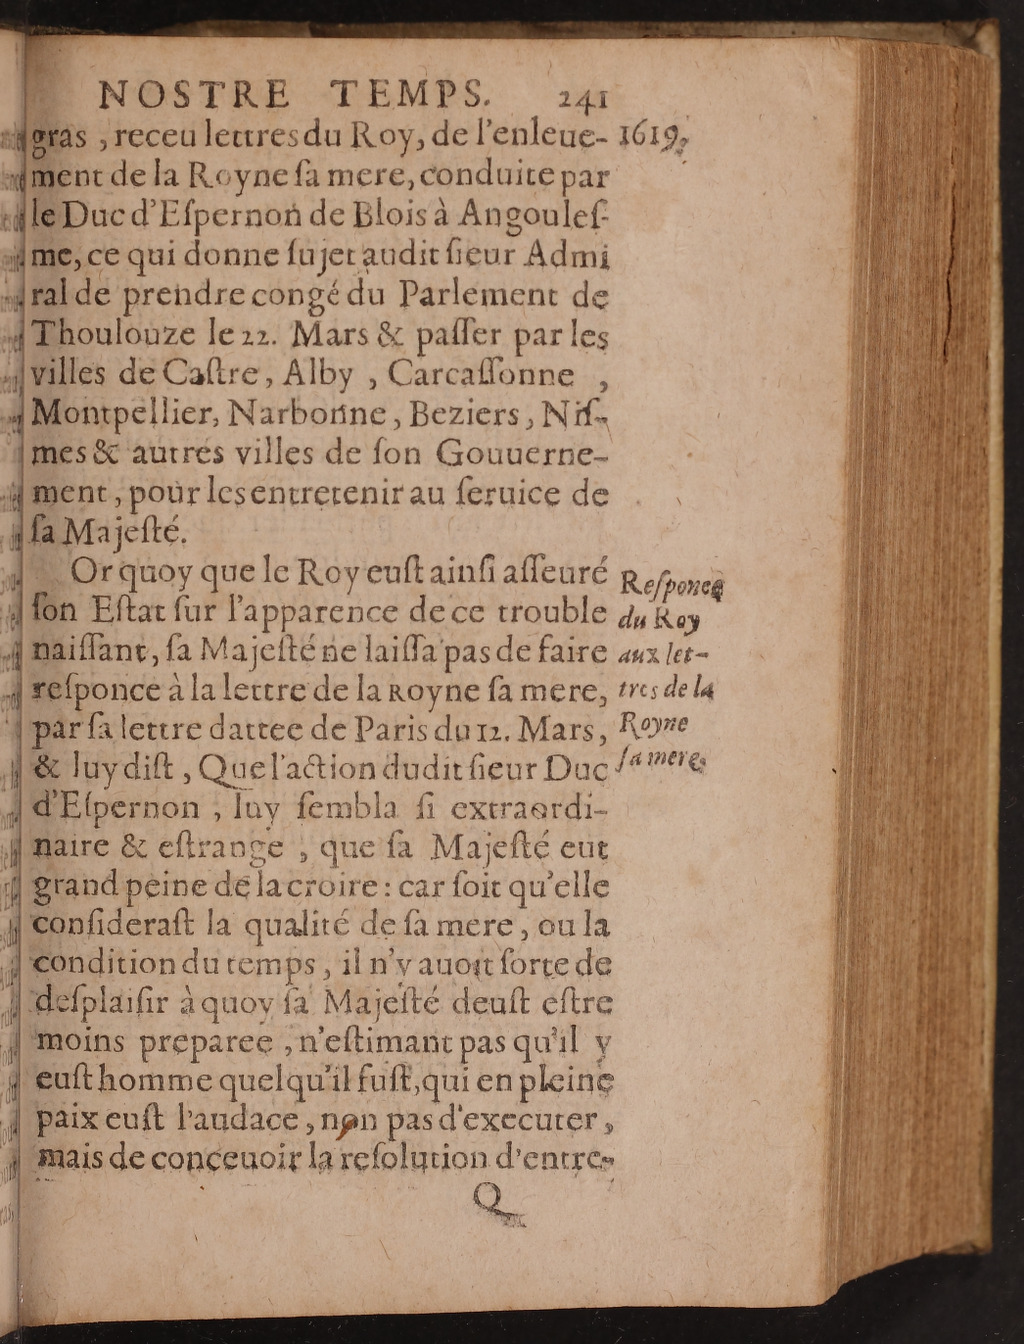 NOSTRE TEMPS. 241
gras, receu lettres du Roy, de l'enleue- 1619,
ment de la Royne ſa mere, conduite par
le Duc d'Eſpernon de Blois à Angouleſ-
me, ce qui donne ſujet audit ſieur Admi
ral de prendre congé du Parlement de
Thoulouze le 22. Mars & paſſer par les
villes de Caſtre, Alby, Carcaſſonne,
Montpellier, Narbonne, Beziers, Niſ-
mes & autres villes de ſon Gouuerne-
ment, pour les entretenir au ſeruice de
ſa Majeſté.
Or quoy que le Roy euſt ainſi aſſeuré
ſon Eſtat ſur l'apparence de ce trouble
naiſſant, ſa Majeſté ne laiſſa pas de faire
reſponce à la lettre de la Royne ſa mere,
par ſa lettre dattee de Paris du 12. Mars,
& luy diſt, Que l'action dudit ſieur Duc
d'Eſpernon, luy ſembla ſi extraordi-
naire & eſtrange, que ſa Majeſté eut
grand peine de la croire: car ſoit qu'elle
conſideraſt la qualité de ſa mere, ou la
condition du temps, il n'y auoit ſorte de
deſplaiſir à quoy ſa Majeſté deuſt eſtre
moins preparee, n'eſtimant pas qu'il y
euſt homme quelqu'il fuſt, qui en pleine
paix euſt l'audace, non pas d'executer,
mais de conceuoir la reſolution d'entre-
Q
Reſponce
du Roy
aux let-
tres de la
Royne
ſa mere.